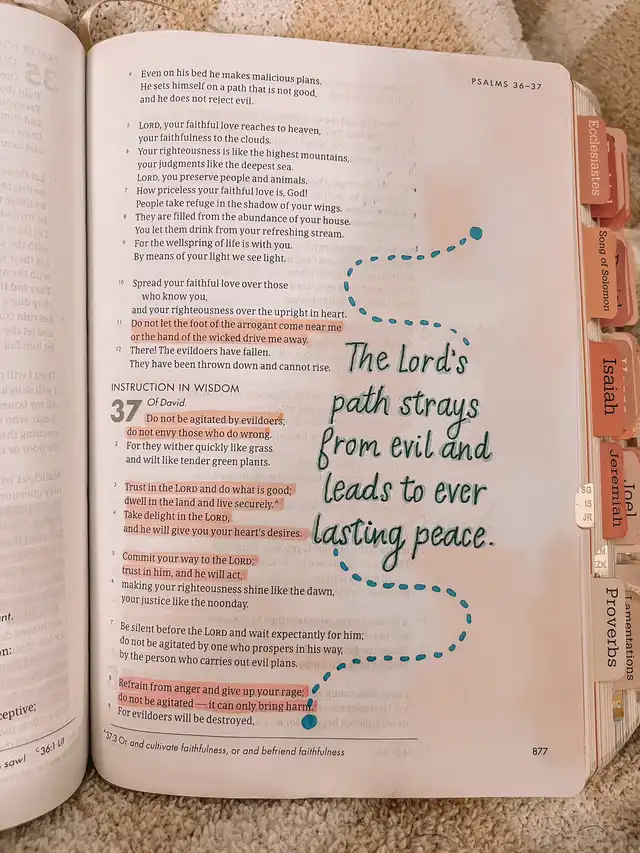 PSALMS 36–37
4 Even on his bed he makes malicious plans.
He sets himself on a path that is not good,
and he does not reject evil.
5 LORD, your faithful love reaches to heaven,
your faithfulness to the clouds.
6 Your righteousness is like the highest mountains,
your judgments like the deepest sea.
LORD, you preserve people and animals.
7 How priceless your faithful love is, God!
People take refuge in the shadow of your wings.
8 They are filled from the abundance of your house.
You let them drink from your refreshing stream.
9 For the wellspring of life is with you.
By means of your light we see light.
10 Spread your faithful love over those
who know you,
and your righteousness over the upright in heart.
11 Do not let the foot of the arrogant come near me
or the hand of the wicked drive me away.
12 There! The evildoers have fallen.
They have been thrown down and cannot rise.
INSTRUCTION IN WISDOM
37 Of David.
Do not be agitated by evildoers;
do not envy those who do wrong.
2 For they wither quickly like grass
and wilt like tender green plants.
3 Trust in the LORD and do what is good;
dwell in the land and live securely.A
4 Take delight in the LORD,
and he will give you your heart's desires.
5 Commit your way to the LORD;
trust in him, and he will act,
6 making your righteousness shine like the dawn,
your justice like the noonday.
7 Be silent before the LORD and wait expectantly for him;
do not be agitated by one who prospers in his way,
by the person who carries out evil plans.
8 Refrain from anger and give up your rage;
do not be agitated — it can only bring harm.
9 For evildoers will be destroyed,
A 37:3 Or and cultivate faithfulness, or and befriend faithfulness
877
The Lord's
path strays
from evil and
leads to ever
lasting peace.
Ecclesiastes
Song of Solomon
Isaiah
Jeremiah
Joel
SG
IS
JR
ZK
Proverbs
Lamentations
ceptive;
C 36:1